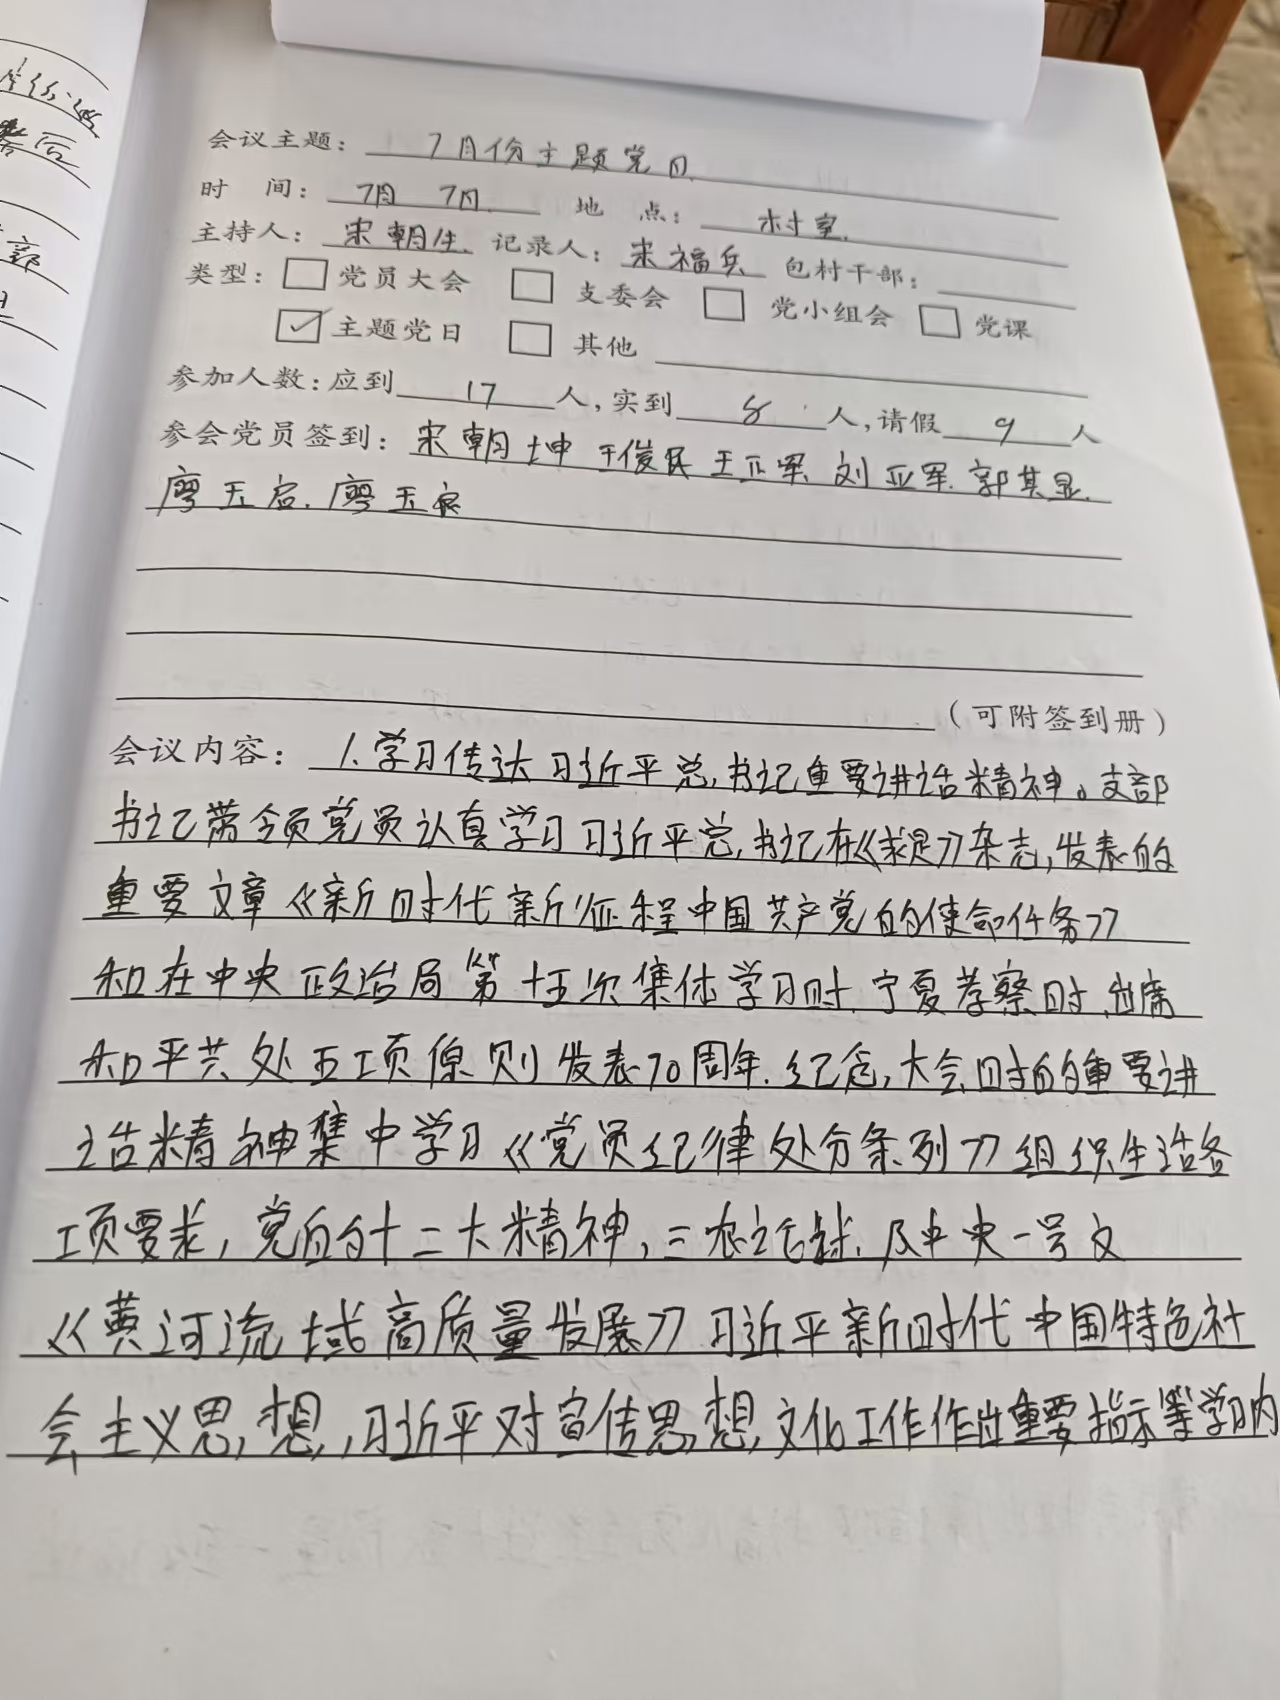 会议主题：7月份主题党日
时 间：7月 7月 地 点：村室
主持人：宋朝生 记录人：宋福兵 包村干部：
类型：□党员大会 □支委会 □党小组会 □党课
☑主题党日 □其他
参加人数：应到17人，实到8人，请假9人
参会党员签到：宋朝坤 王俊民 王正军 刘亚军 郭其显
廖玉启 廖玉良
（可附签到册）
会议内容：1.学习传达习近平总书记重要讲话精神。支部
书记带领党员认真学习习近平总书记在《求是》杂志发表的
重要文章《新时代新征程中国共产党的使命任务》
和在中央政治局第十五次集体学习时、宁夏考察时、出席
和平共处五项原则发表70周年纪念大会时的重要讲
话精神集中学习《党员纪律处分条列》组织生活各
项要求，党的十二大精神，三农话题及中央一号文
《黄河流域高质量发展》习近平新时代中国特色社
会主义思想，习近平对宣传思想文化工作作出重要指示等学习内